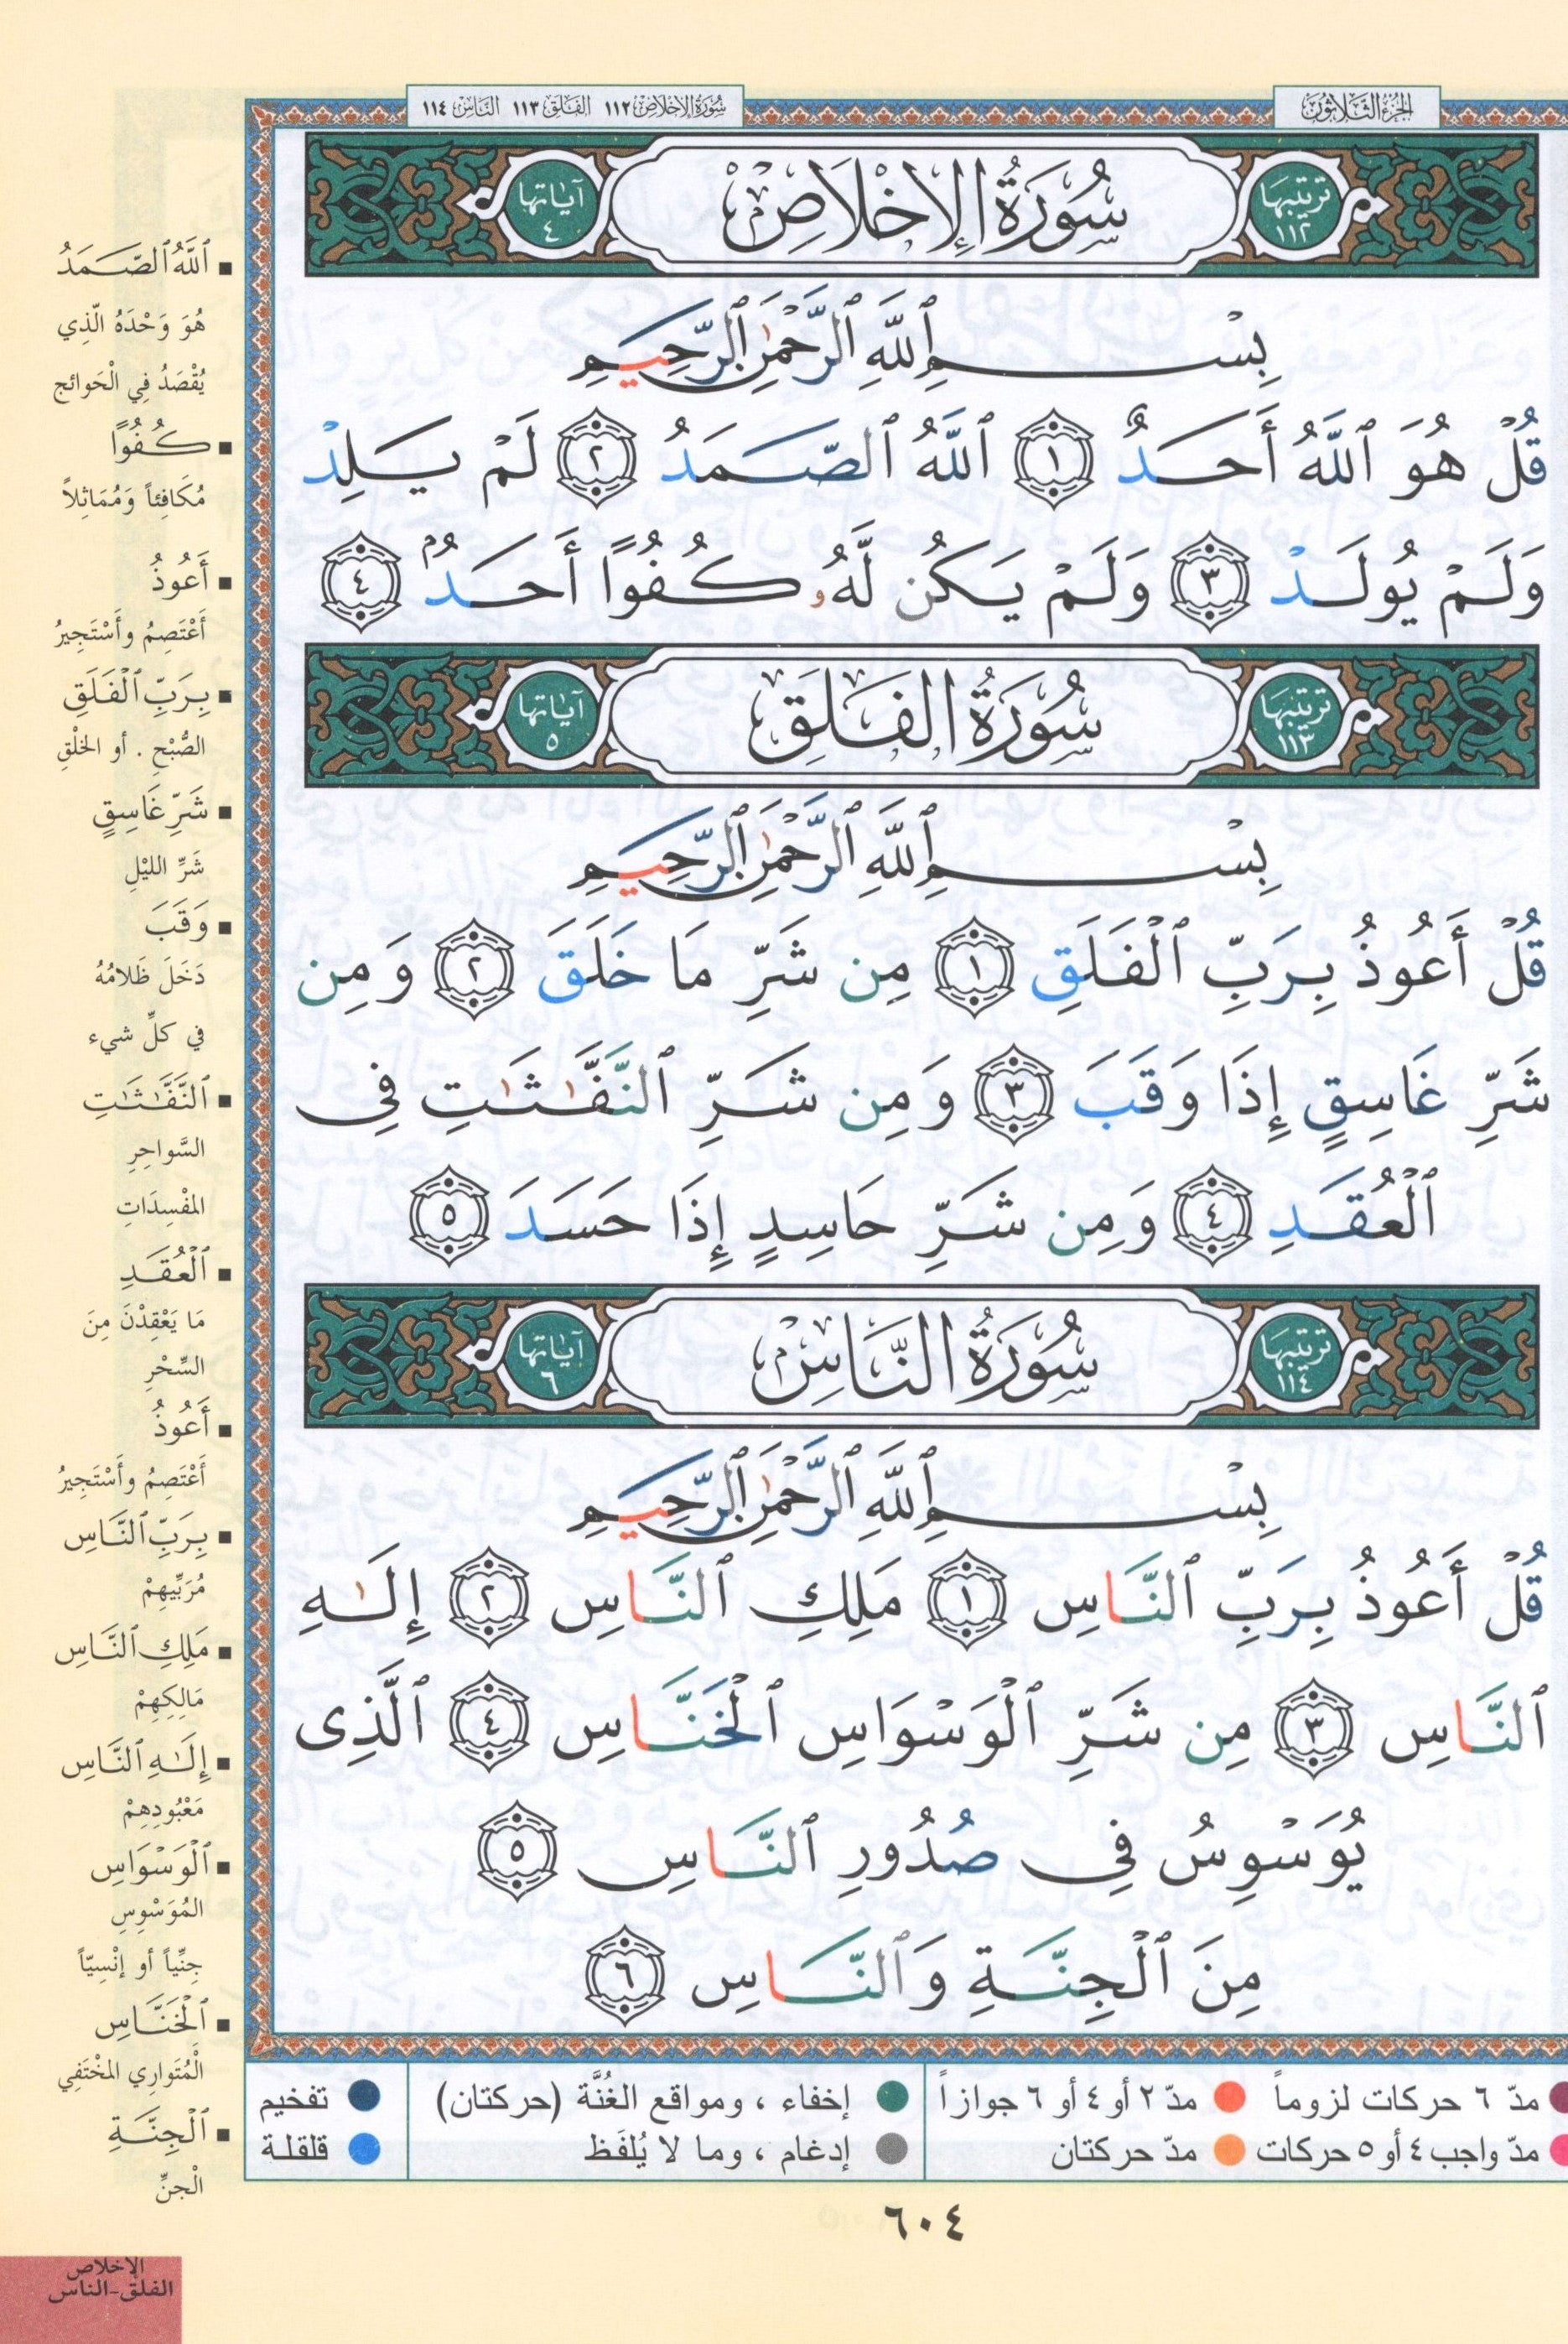 الجزء الثلاثون
سورة الإخلاص ١١٢ الفلق ١١٣ الناس ١١٤
ترتيبها ١١٢
سُورَةُ الإِخْلَاصِ
آياتها ٤
بِسْمِ ٱللَّهِ ٱلرَّحْمَٰنِ ٱلرَّحِيمِ
قُلْ هُوَ ٱللَّهُ أَحَدٌ ١ ٱللَّهُ ٱلصَّمَدُ ٢ لَمْ يَلِدْ
وَلَمْ يُولَدْ ٣ وَلَمْ يَكُن لَّهُۥ كُفُوًا أَحَدٌۢ ٤
ترتيبها ١١٣
سُورَةُ الفَلَقِ
آياتها ٥
بِسْمِ ٱللَّهِ ٱلرَّحْمَٰنِ ٱلرَّحِيمِ
قُلْ أَعُوذُ بِرَبِّ ٱلْفَلَقِ ١ مِن شَرِّ مَا خَلَقَ ٢ وَمِن
شَرِّ غَاسِقٍ إِذَا وَقَبَ ٣ وَمِن شَرِّ ٱلنَّفَّٰثَٰتِ فِى
ٱلْعُقَدِ ٤ وَمِن شَرِّ حَاسِدٍ إِذَا حَسَدَ ٥
ترتيبها ١١٤
سُورَةُ النَّاسِ
آياتها ٦
بِسْمِ ٱللَّهِ ٱلرَّحْمَٰنِ ٱلرَّحِيمِ
قُلْ أَعُوذُ بِرَبِّ ٱلنَّاسِ ١ مَلِكِ ٱلنَّاسِ ٢ إِلَٰهِ
ٱلنَّاسِ ٣ مِن شَرِّ ٱلْوَسْوَاسِ ٱلْخَنَّاسِ ٤ ٱلَّذِى
يُوَسْوِسُ فِى صُدُورِ ٱلنَّاسِ ٥
مِنَ ٱلْجِنَّةِ وَٱلنَّاسِ ٦
▪ ٱللَّهُ ٱلصَّمَدُ
هُوَ وَحْدَهُ الَّذِي
يُقْصَدُ فِي الْحَوائج
▪ كُفُوًا
مُكَافِئاً وَمُمَاثِلاً
▪ أَعُوذُ
أَعْتَصِمُ وأَسْتَجِيرُ
▪ بِرَبِّ ٱلْفَلَقِ
الصُّبْحِ . أو الخلْقِ
▪ شَرِّ غَاسِقٍ
شَرِّ الليْلِ
▪ وَقَبَ
دَخَلَ ظَلامُهُ
في كلِّ شيء
▪ ٱلنَّفَّٰثَٰتِ
السَّواحِرِ
المفْسِدَاتِ
▪ ٱلْعُقَدِ
مَا يَعْقِدْنَ مِنَ
السِّحْرِ
▪ أَعُوذُ
أَعْتَصِمُ وأَسْتَجِيرُ
▪ بِرَبِّ ٱلنَّاسِ
مُرَبِّيهِمْ
▪ مَلِكِ ٱلنَّاسِ
مَالِكِهِمْ
▪ إِلَٰهِ ٱلنَّاسِ
مَعْبُودِهِمْ
▪ ٱلْوَسْوَاسِ
المُوَسْوِسِ
جِنِّياً أو إنْسِيّاً
▪ ٱلْخَنَّاسِ
الْمُتَوارِي المخْتَفِي
▪ ٱلْجِنَّةِ
الْجنِّ
مدّ ٦ حركات لزوماً مدّ ٢ أو ٤ أو ٦ جوازاً
مدّ واجب ٤ أو ٥ حركات مدّ حركتان
إخفاء ، ومواقع الغُنَّة (حركتان)
إدغام ، وما لا يُلفَظ
تفخيم
قلقلة
٦٠٤
الإخلاص
الفلق-الناس